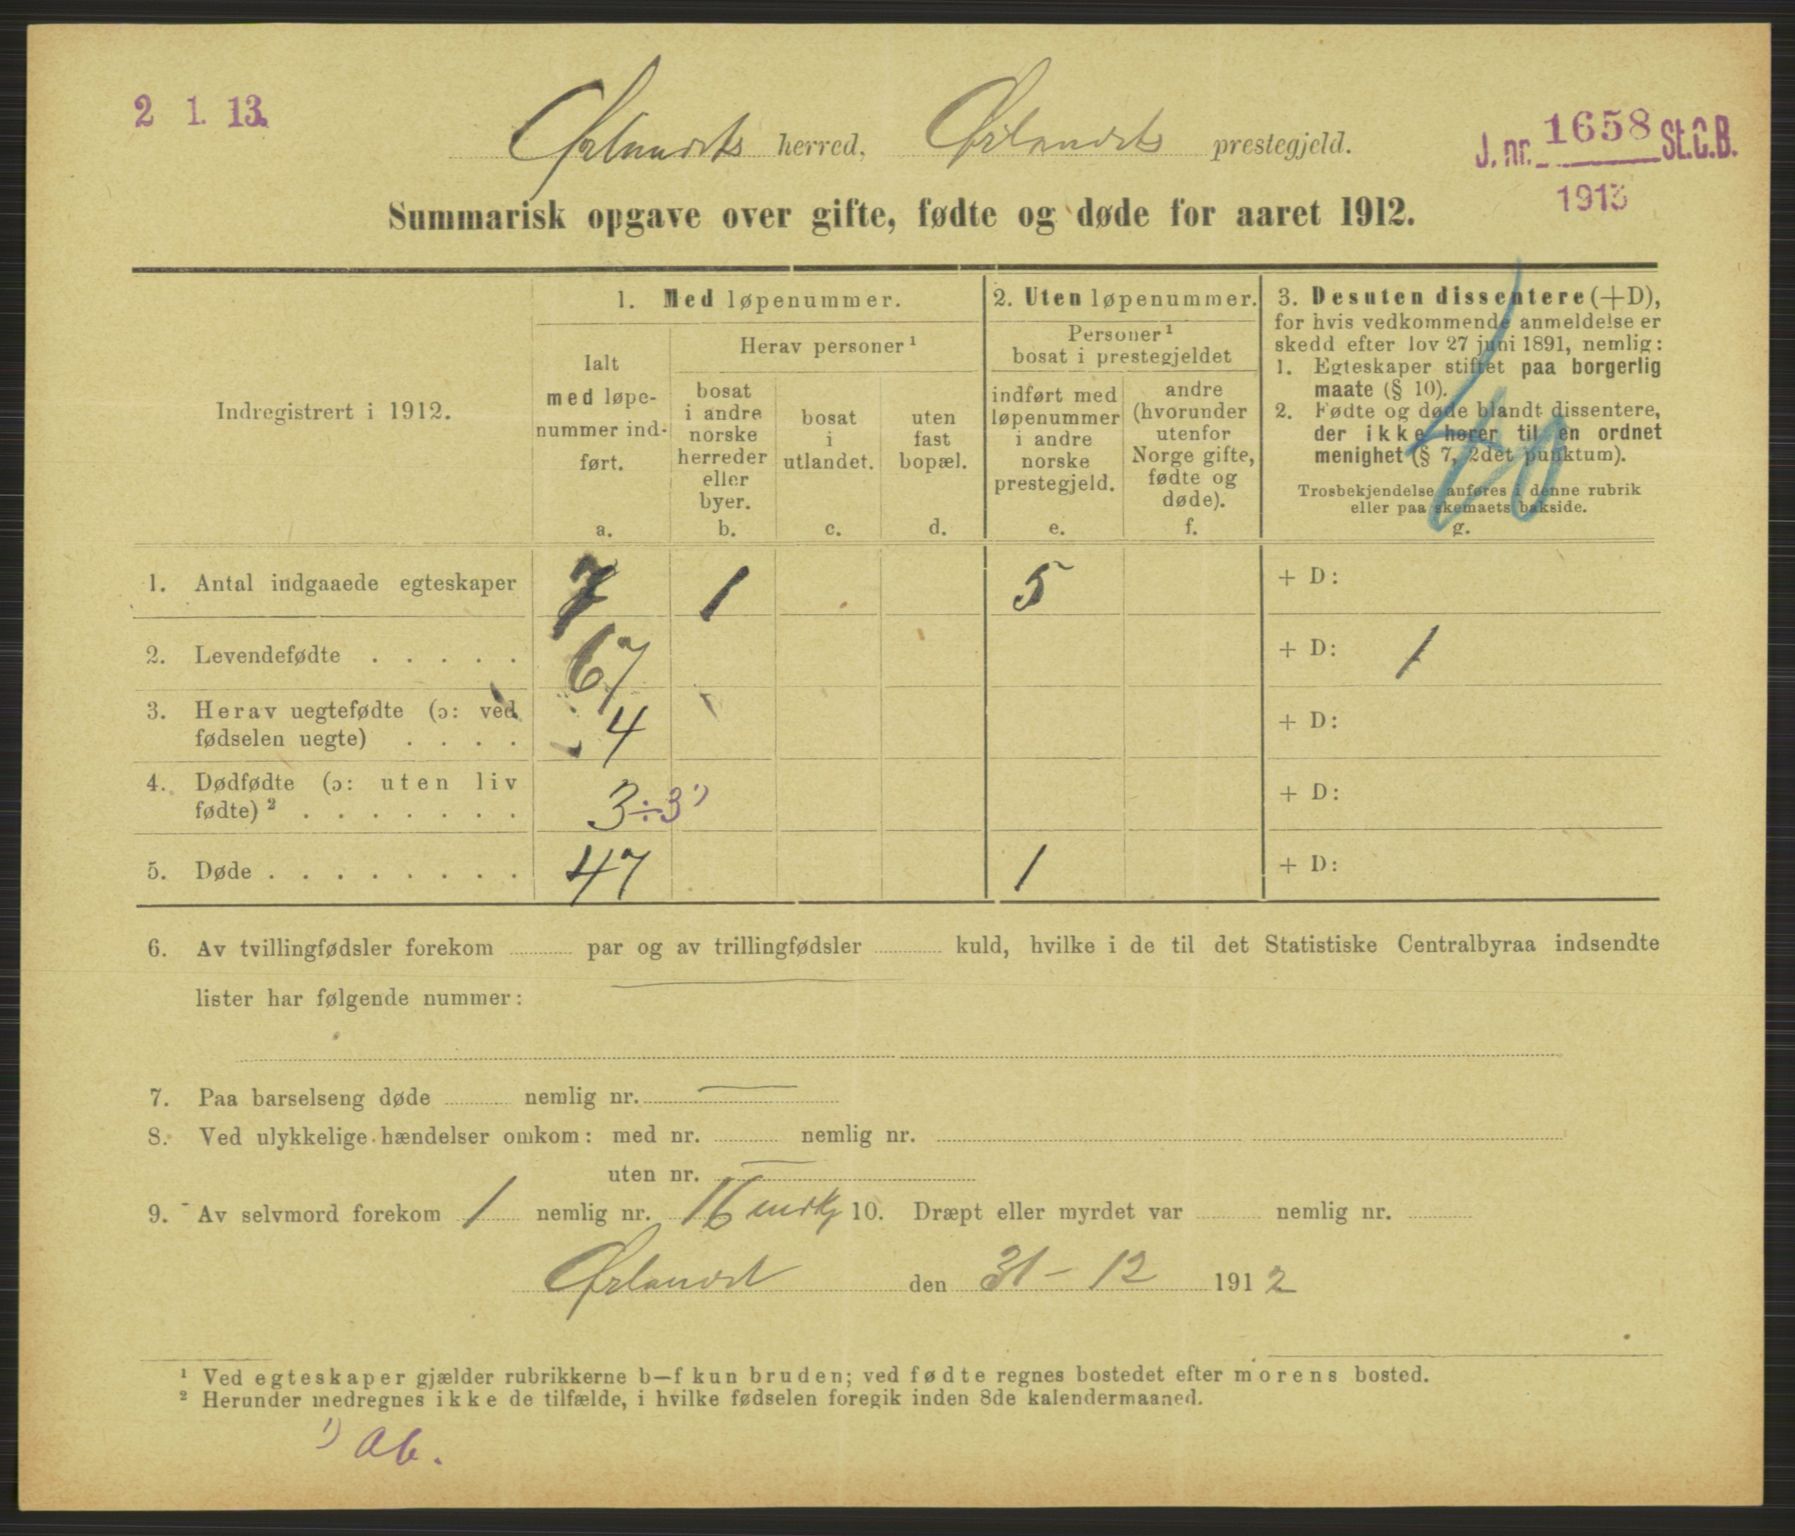 2 1. 13.
Ørlandets herred, Ørlandets prestegjeld.
J. nr. 1658 St.C.B.
1913
Summarisk opgave over gifte, fødte og døde for aaret 1912.
Indregistrert i 1912.
1. Med løpenummer.
Ialt med løpe-
nummer ind-
ført.
a.
Herav personer ¹
bosat
i andre
norske
herreder
eller
byer.
b.
bosat
i
utlandet.
c.
uten
fast
bopæl.
d.
2. Uten løpenummer.
Personer ¹
bosat i prestegjeldet
indført med
løpenummer
i andre
norske
prestegjeld.
e.
andre
(hvorunder
utenfor
Norge gifte,
fødte og
døde).
f.
3. Desuten dissentere (+D),
for hvis vedkommende anmeldelse er
skedd efter lov 27 juni 1891, nemlig:
1. Egteskaper stiftet paa borgerlig
maate (§ 10).
2. Fødte og døde blandt dissentere,
der ikke hører til en ordnet
menighet (§ 7, 2det punktum).
Trosbekjendelse anføres i denne rubrik
eller paa skemaets bakside.
g.
1. Antal indgaaede egteskaper 7 1 5 + D:
2. Levendefødte . . . . . 67 + D: 1
3. Herav uegtefødte (ɔ: ved
fødselen uegte) . . . . 4 + D:
4. Dødfødte (ɔ: uten liv
fødte) ² . . . . . . . 3÷3 ¹) + D:
5. Døde . . . . . . . . 47 1 + D:
6. Av tvillingfødsler forekom par og av trillingfødsler kuld, hvilke i de til det Statistiske Centralbyraa indsendte
lister har følgende nummer: —
7. Paa barselseng døde nemlig nr. —
8. Ved ulykkelige hændelser omkom: med nr. nemlig nr.
uten nr. —
9. Av selvmord forekom 1 nemlig nr. 16 mdkj 10. Dræpt eller myrdet var nemlig nr.
Ørlandet den 31 – 12 1912
¹ Ved egteskaper gjælder rubrikkerne b—f kun bruden; ved fødte regnes bostedet efter morens bosted.
² Herunder medregnes ikke de tilfælde, i hvilke fødselen foregik inden 8de kalendermaaned.
¹) ab.